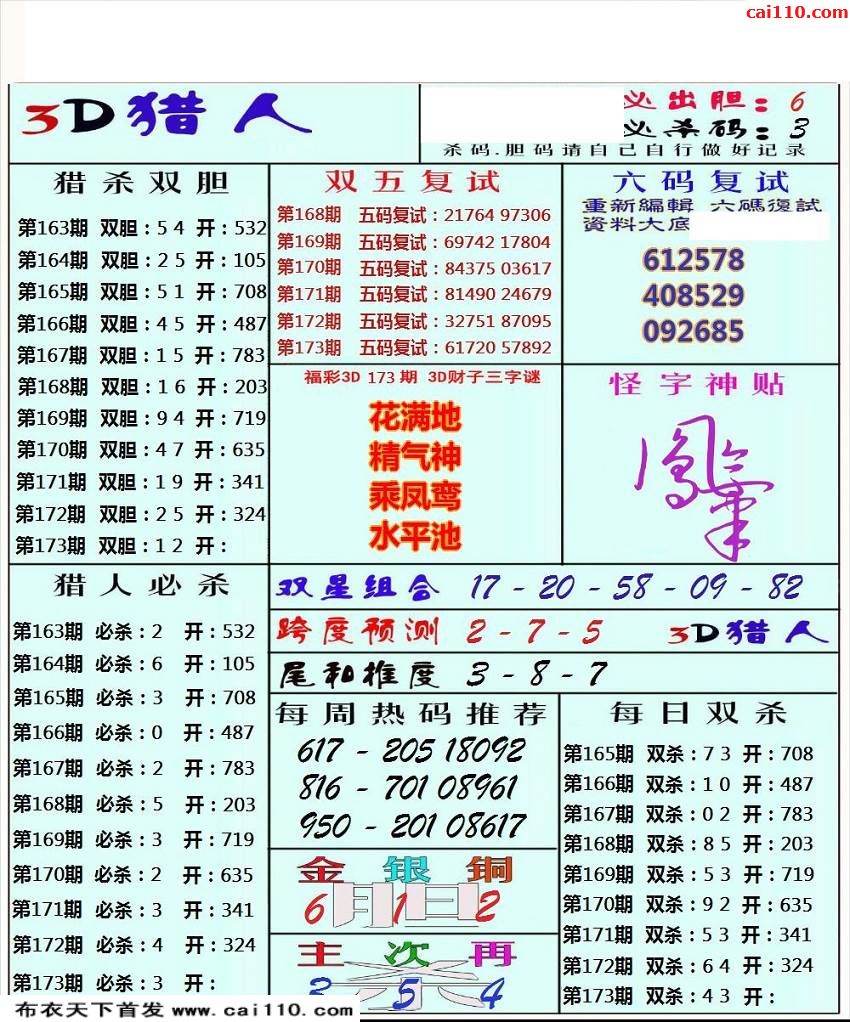 cai110.com
3D猎人
必出胆：6
必杀码：3
杀码.胆码请自己自行做好记录
猎杀双胆
第163期 双胆：5 4 开：532
第164期 双胆：2 5 开：105
第165期 双胆：5 1 开：708
第166期 双胆：4 5 开：487
第167期 双胆：1 5 开：783
第168期 双胆：1 6 开：203
第169期 双胆：9 4 开：719
第170期 双胆：4 7 开：635
第171期 双胆：1 9 开：341
第172期 双胆：2 5 开：324
第173期 双胆：1 2 开：
双五复试
第168期 五码复试：21764 97306
第169期 五码复试：69742 17804
第170期 五码复试：84375 03617
第171期 五码复试：81490 24679
第172期 五码复试：32751 87095
第173期 五码复试：61720 57892
六码复试
重新編輯 六碼復試
資料大底
612578
408529
092685
福彩3D 173 期 3D财子三字谜
花满地
精气神
乘凤鸾
水平池
怪字神贴
猎人必杀
第163期 必杀：2 开：532
第164期 必杀：6 开：105
第165期 必杀：3 开：708
第166期 必杀：0 开：487
第167期 必杀：2 开：783
第168期 必杀：5 开：203
第169期 必杀：3 开：719
第170期 必杀：2 开：635
第171期 必杀：3 开：341
第172期 必杀：4 开：324
第173期 必杀：3 开：
双星组合 17 - 20 - 58 - 09 - 82
跨度预测 2 - 7 - 5 3D猎人
尾和推度 3 - 8 - 7
每周热码推荐
617 - 205 18092
816 - 701 08961
950 - 201 08617
金 银 铜
6 1 2
主 次 再
3 5 4
每日双杀
第165期 双杀：7 3 开：708
第166期 双杀：1 0 开：487
第167期 双杀：0 2 开：783
第168期 双杀：8 5 开：203
第169期 双杀：5 3 开：719
第170期 双杀：9 2 开：635
第171期 双杀：5 3 开：341
第172期 双杀：6 4 开：324
第173期 双杀：4 3 开：
布衣天下首发 www.cai110.com